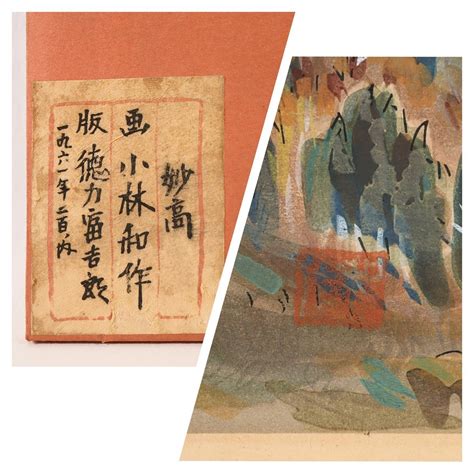 妙高
画 小林和作
版 德力富吉郎
一九六一年 二百ノ内